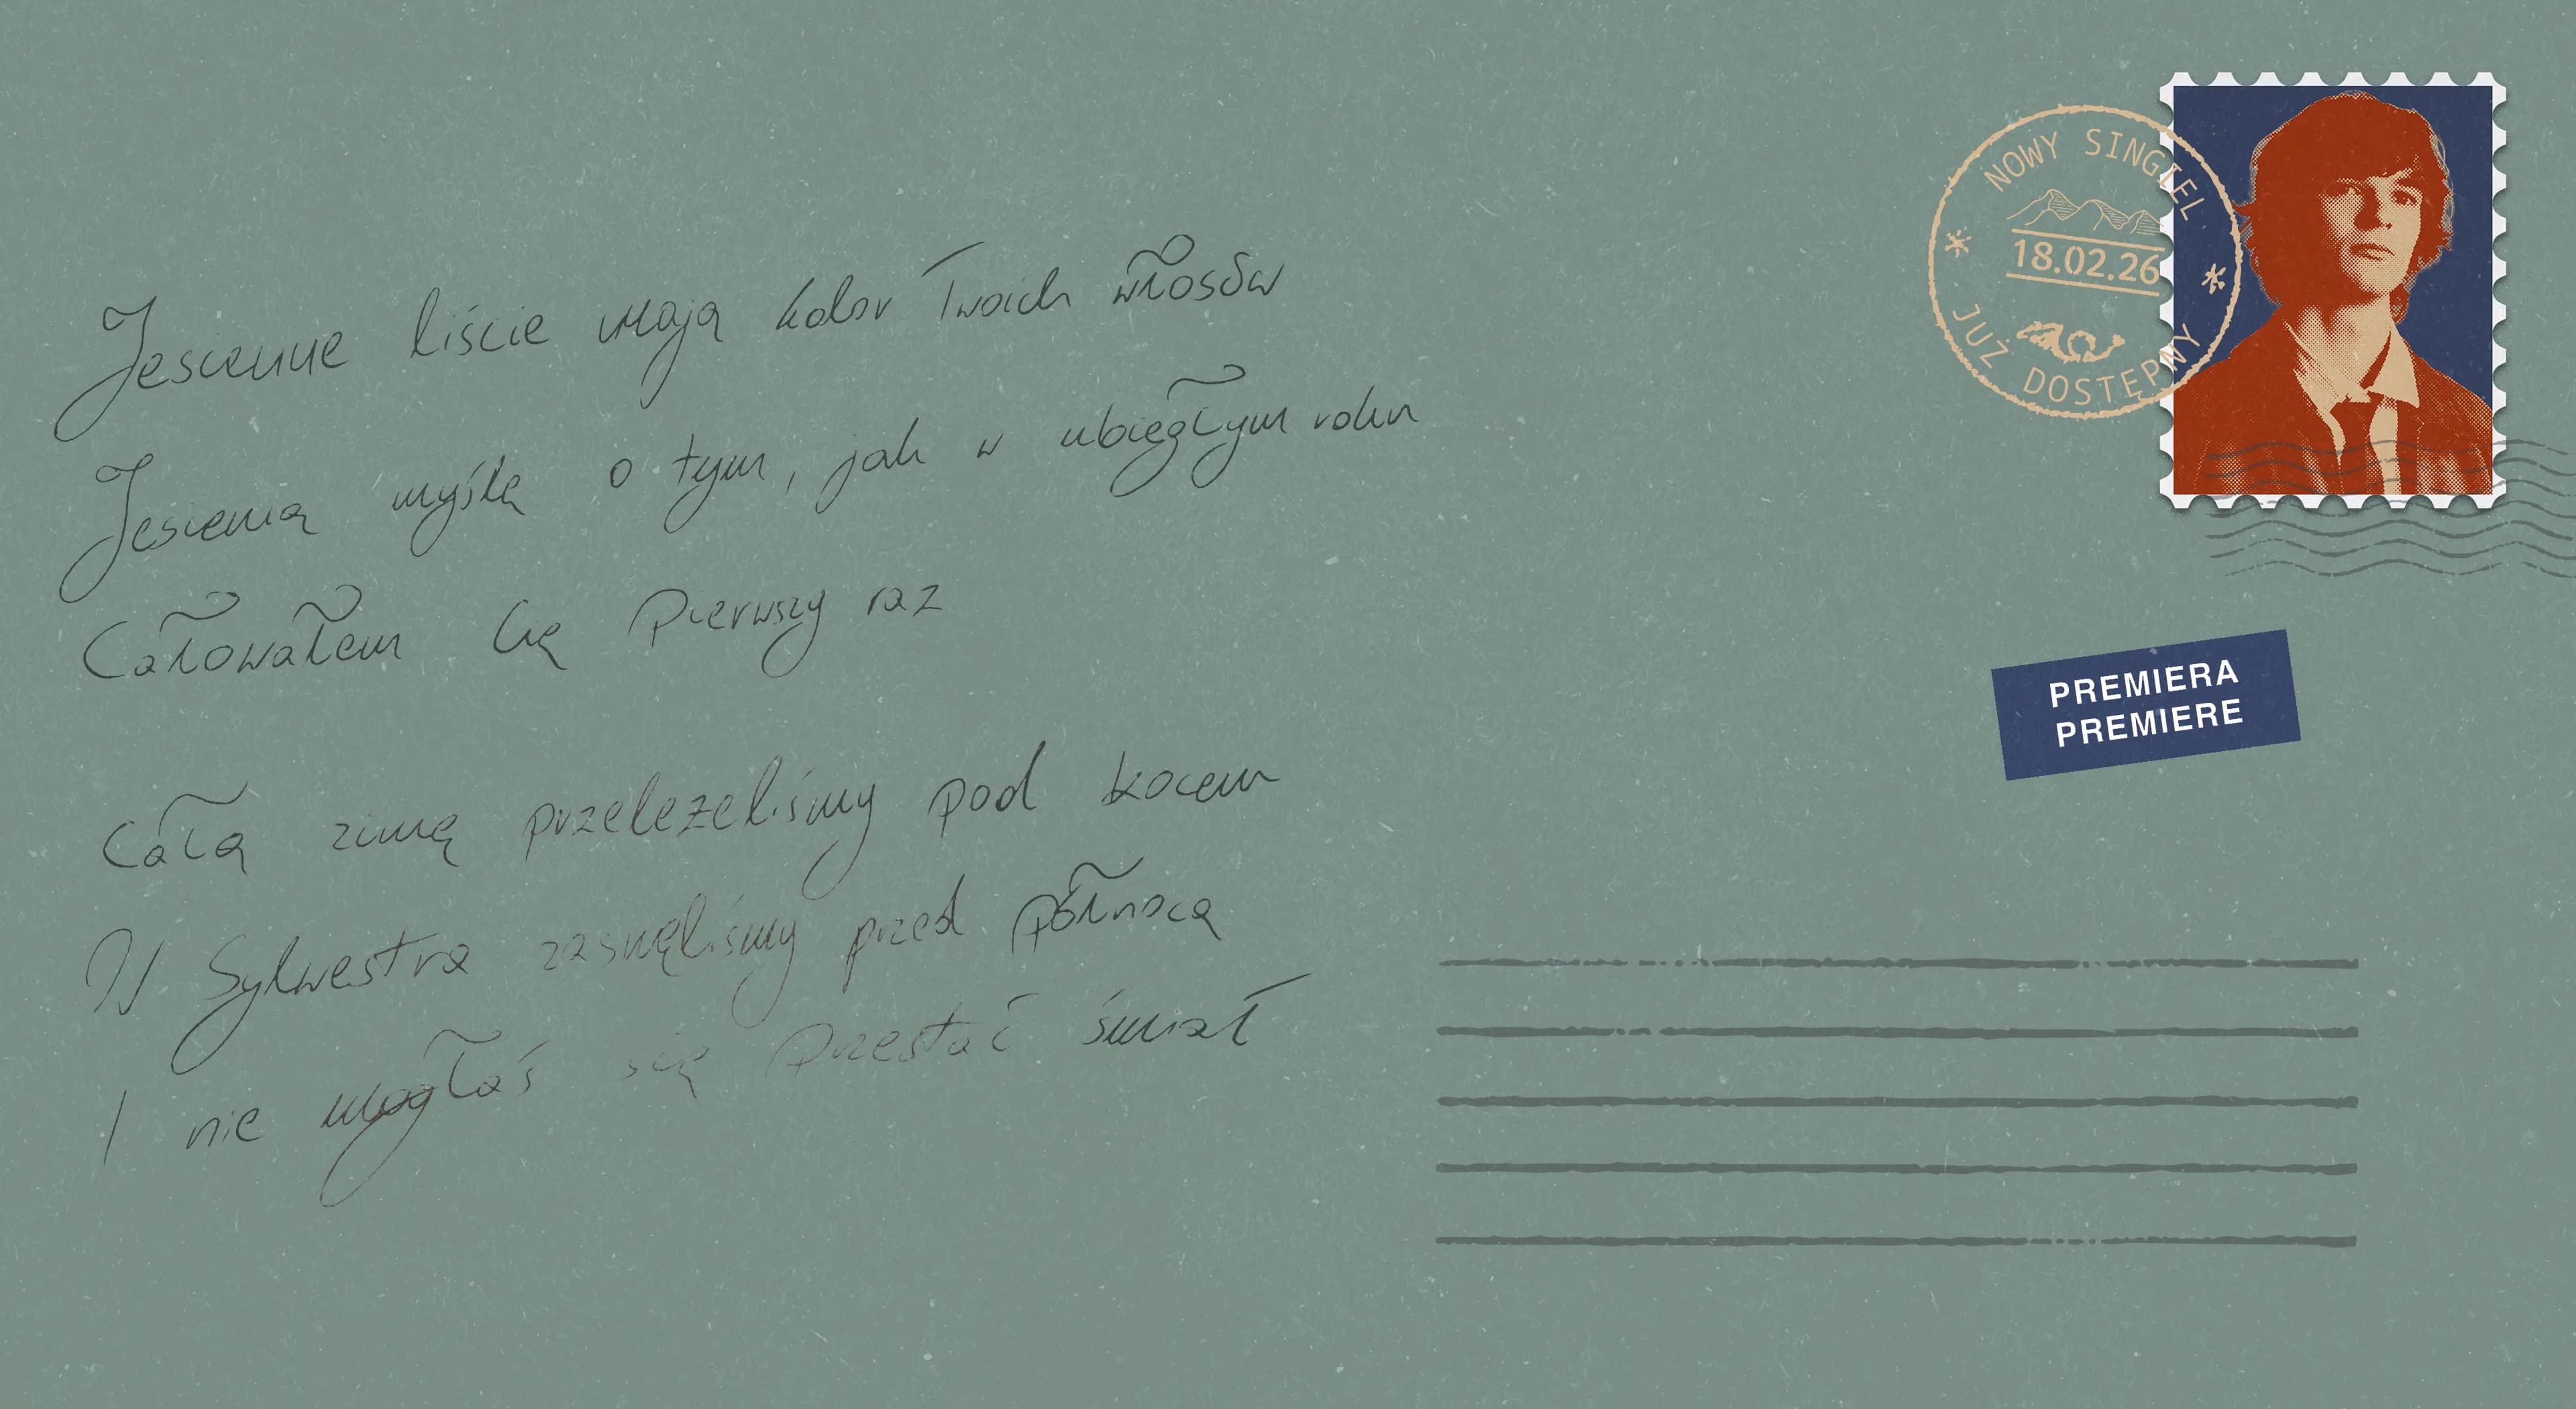 Jesienne liście mają kolor Twoich włosów
Jesienią myślę o tym, jak w ubiegłym roku
Całowałem Cię Pierwszy raz
Całą zimę przeleżeliśmy pod kocem
W Sylwestra zasnęliśmy przed północą
I nie mogłaś się przestać śmiać
NOWY SINGIEL
18.02.26
JUŻ DOSTĘPNY
PREMIERA
PREMIERE